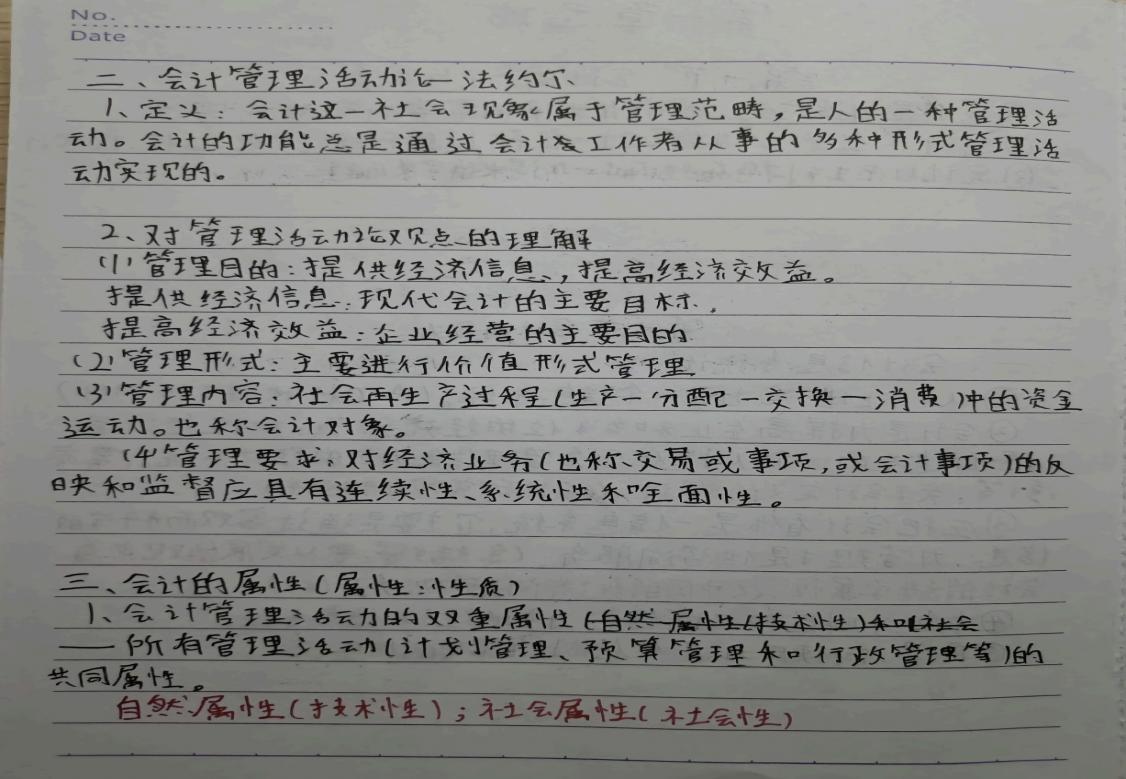 No.
Date
二、会计管理活动论一法约尔
1、定义：会计这一社会现象属于管理范畴，是人的一种管理活
动。会计的功能总是通过会计工作者从事的多种形式管理活
动实现的。
2、对管理活动论观点的理解
(1)管理目的：提供经济信息，提高经济效益。
提供经济信息：现代会计的主要目标.
提高经济效益：企业经营的主要目的.
(2)管理形式：主要进行价值形式管理
(3)管理内容：社会再生产过程(生产一分配一交换一消费)中的资金
运动。也称会计对象。
(4)管理要求：对经济业务(也称交易或事项,或会计事项)的反
映和监督应具有连续性、系统性和全面性。
三、会计的属性(属性：性质)
1、会计管理活动的双重属性(自然属性(技术性)和社会
——所有管理活动(计划管理、预算管理和行政管理等)的
共同属性。
自然属性(技术性)；社会属性(社会性)